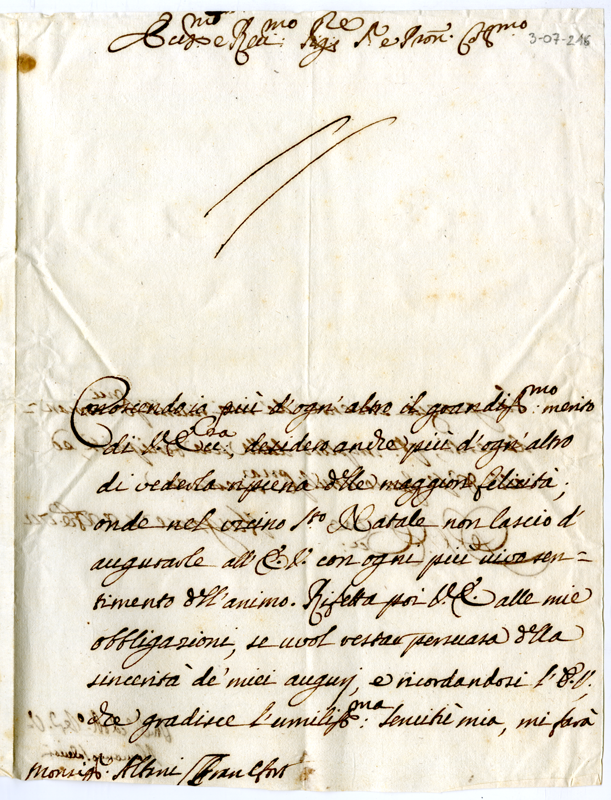 Ecc.mo e Rev.mo Sig.re S.re e Pron. Col.mo
3-07-216
Conoscendo io più d'ogn'altro il grandiss.mo merito
di V. Ecc.za desidero anche più d'ogn'altro
di vederla ripiena delle maggiori felicità;
onde nel vicino S.to Natale non lascio d'
augurarle all'E.V. con ogni più vivo sen=
timento dell'animo. Rifletta poi V.E. alle mie
obbligazioni, se vuol restar persuasa della
sincerità de' miei augurj, e ricordandosi l'E.V.
che gradisce l'umiliss.ma servitù mia, mi farà
Monsig.r Albani Francfort